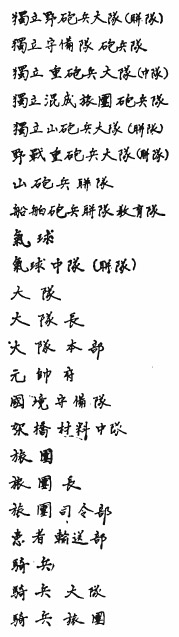 獨立野砲兵大隊(聯隊)
獨立守備隊砲兵隊
獨立重砲兵大隊(中隊)
獨立混成旅團砲兵隊
獨立山砲兵大隊(聯隊)
野戰重砲兵大隊(聯隊)
山砲兵聯隊
船舶砲兵聯隊教育隊
氣球
氣球中隊(聯隊)
大隊
大隊長
大隊本部
元帥府
國境守備隊
架橋材料中隊
旅團
旅團長
旅團司令部
患者輸送部
騎兵
騎兵大隊
騎兵旅團